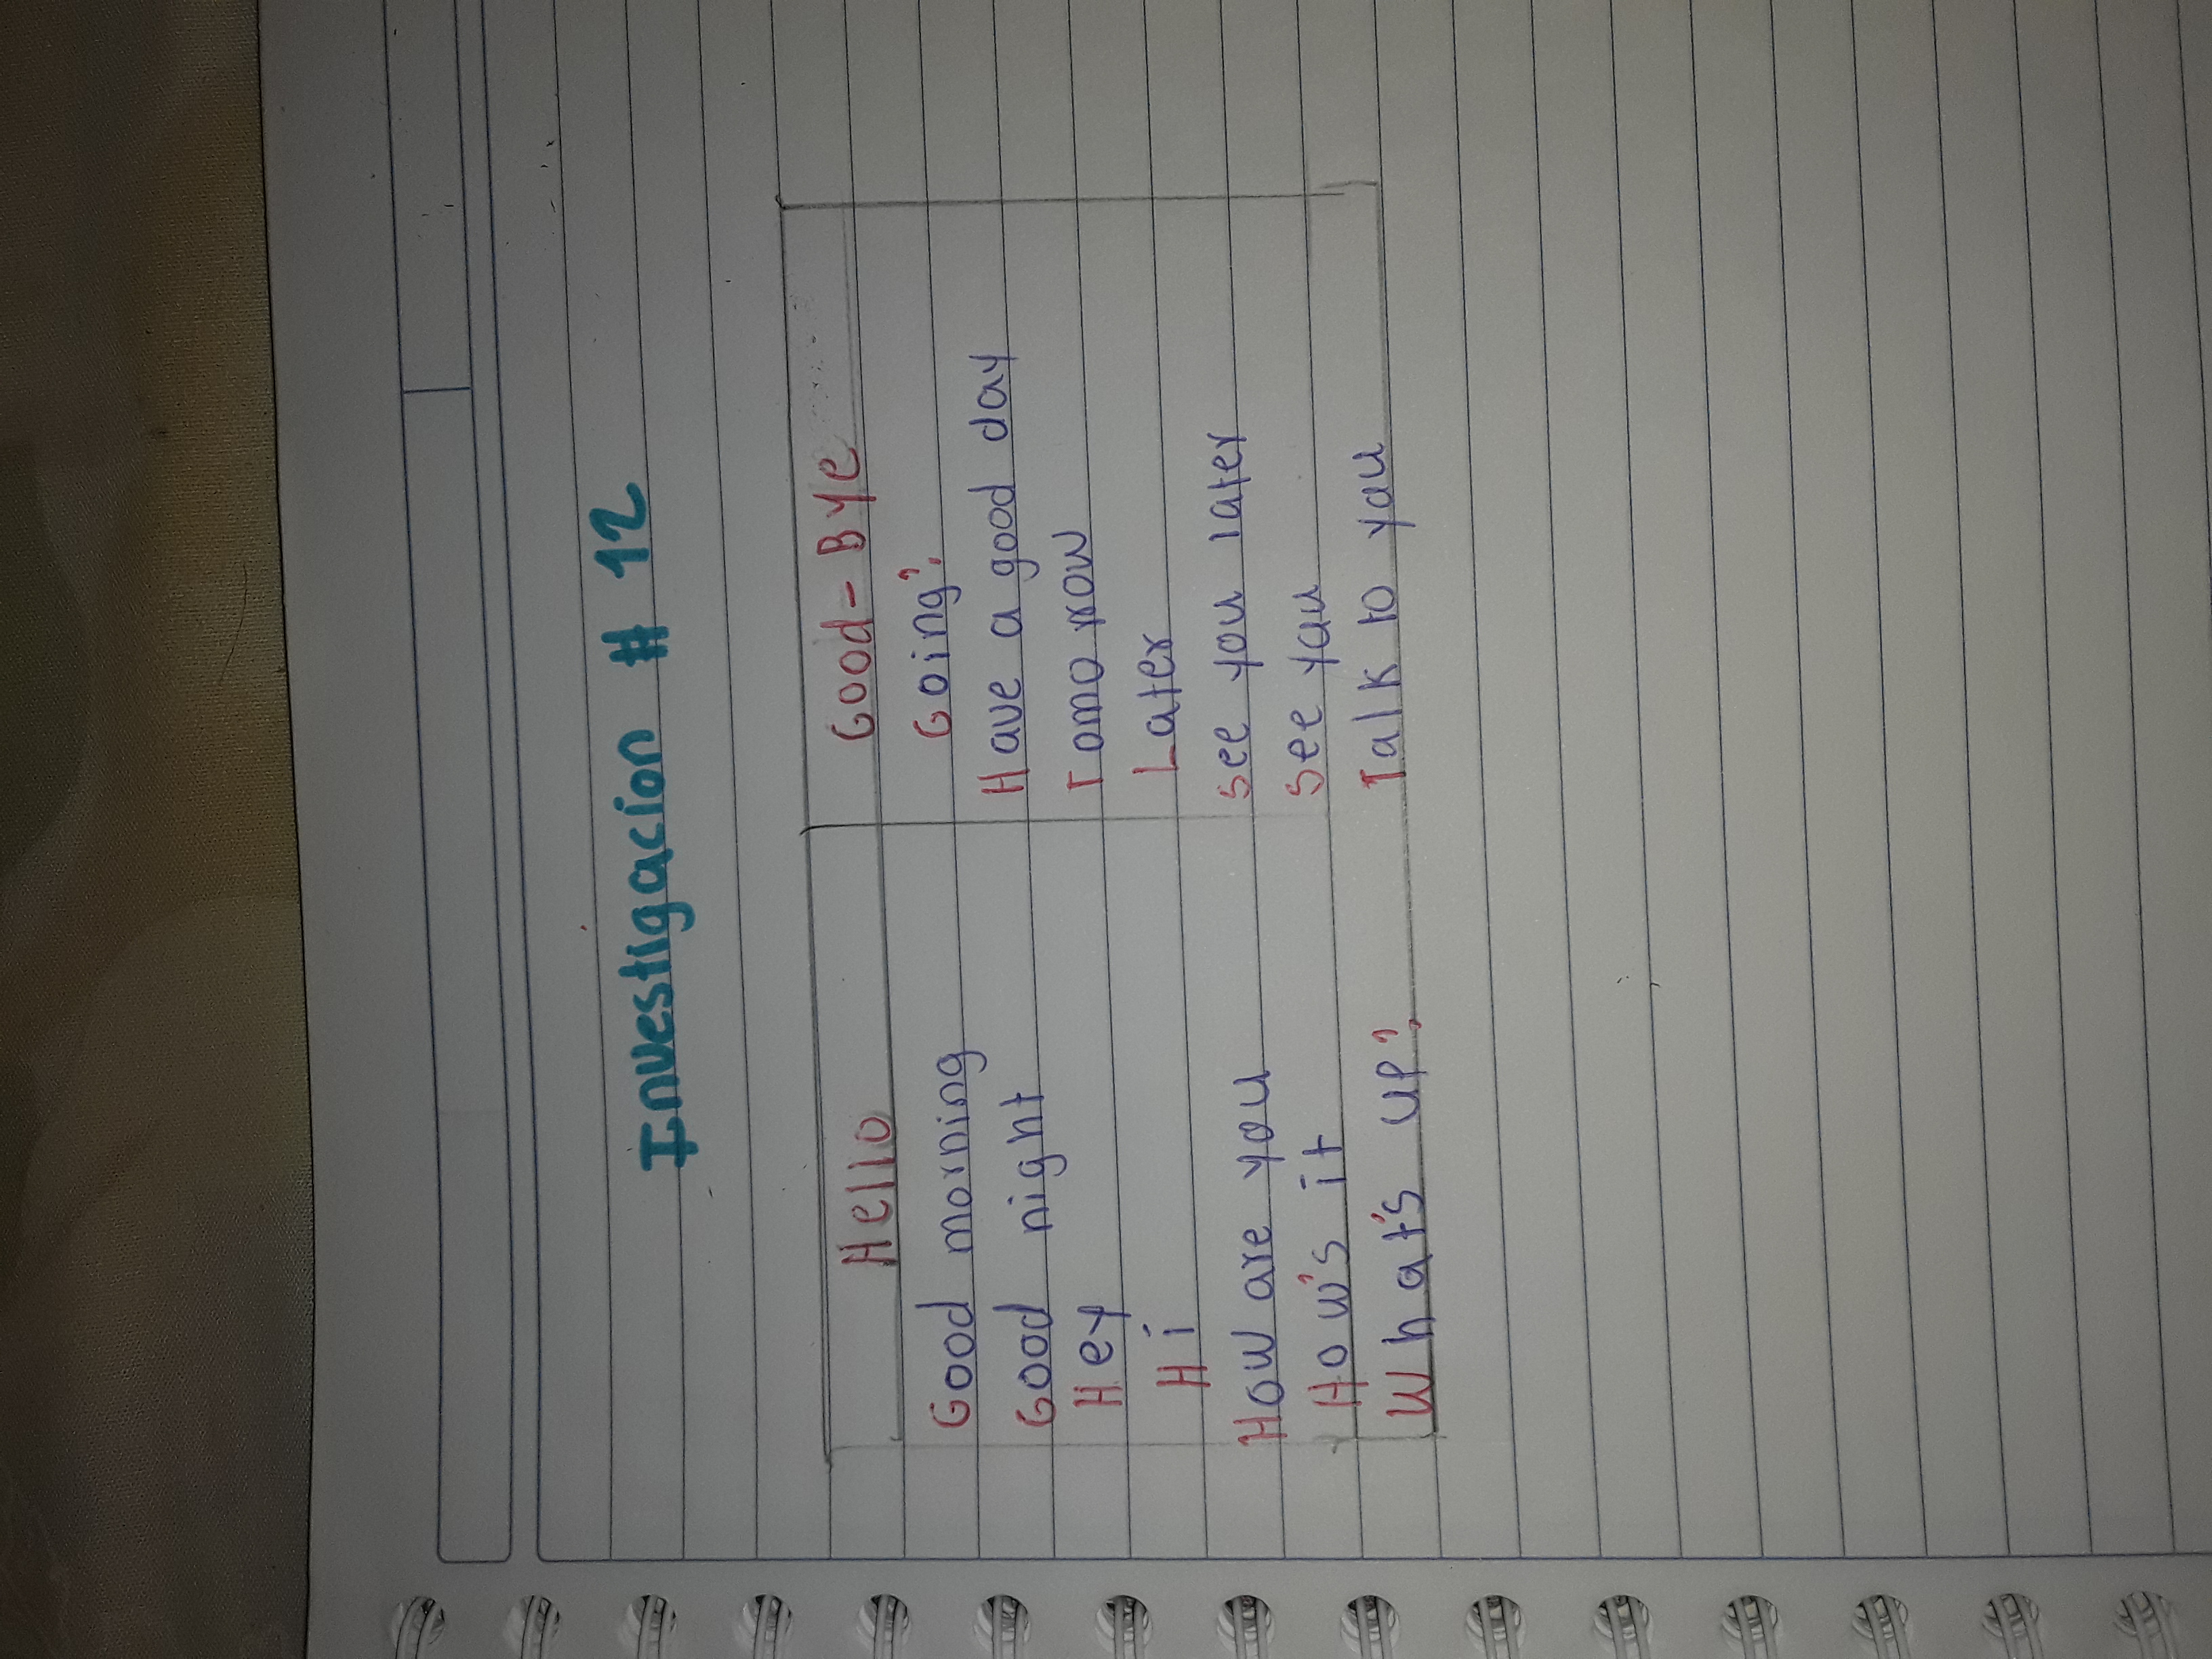 Investigacion # 12
Hello
Good morning
Good night
Hey
Hi
How are you
How's it
What's up?
Good-Bye
Going?
Have a good day
Tomorrow
Later
see you later
See you
Talk to you